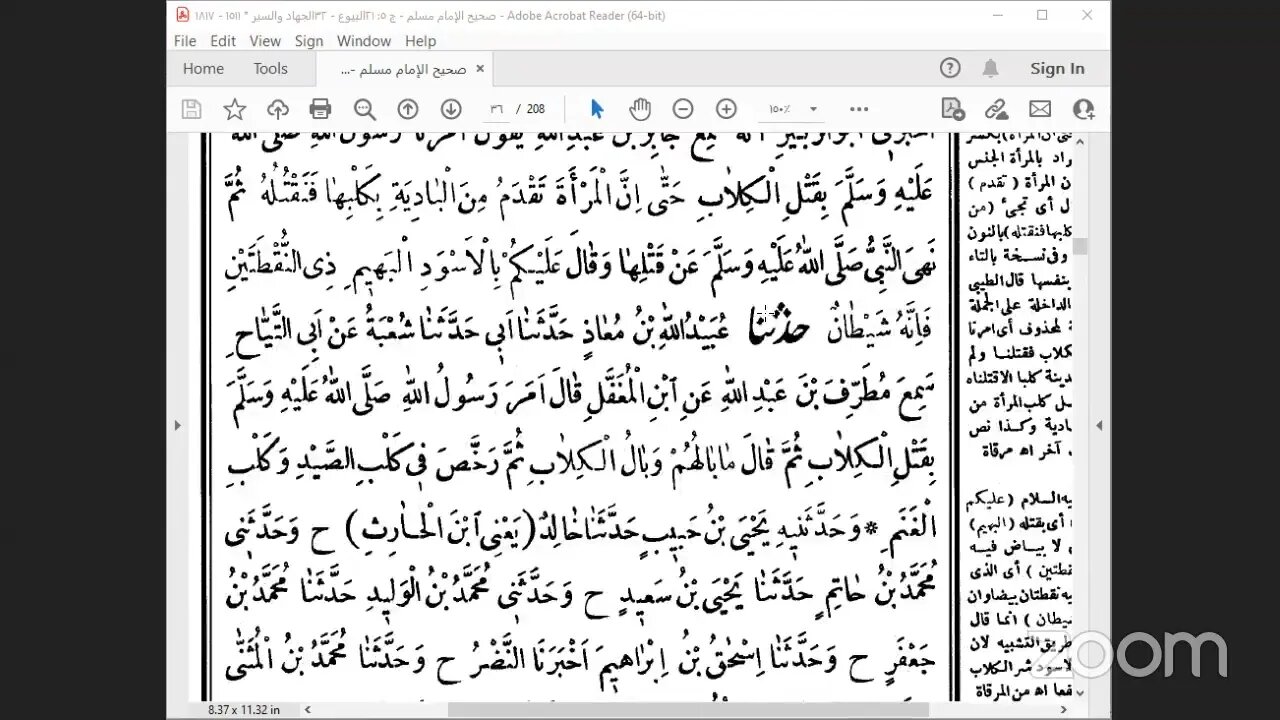 صحيح الإمام مسلم - ج ٥: ٢١البيوع - ٣٢الجهاد والسير * ١٥١١ - ١٨١٧ - Adobe Acrobat Reader (64-bit)
File Edit View Sign Window Help
Home Tools صحيح الإمام مسلم -... × Sign In
٣٦ / 208 ١٥٠٪
جَابِرَ بْنَ عَبْدِاللهِ يَقُولُ اَمَرَنَا رَسُولُ اللهِ صَلَّى اللهُ
عَلَيْهِ وَسَلَّمَ بِقَتْلِ الْكِلَابِ حَتَّى اِنَّ الْمَرْأَةَ تَقْدَمُ مِنَ الْبَادِيَةِ بِكَلْبِهَا فَنَقْتُلُهُ ثُمَّ
نَهَى النَّبِىُّ صَلَّى اللهُ عَلَيْهِ وَسَلَّمَ عَنْ قَتْلِهَا وَقَالَ عَلَيْكُمْ بِالْاَسْوَدِ الْبَهِيمِ ذِى النُّقْطَتَيْنِ
فَاِنَّهُ شَيْطَانٌ حدّثنا عُبَيْدُاللهِ بْنُ مُعَاذٍ حَدَّثَنَا اَبِى حَدَّثَنَا شُعْبَةُ عَنْ اَبِى التَّيَّاحِ
سَمِعَ مُطَرِّفَ بْنَ عَبْدِاللهِ عَنِ ابْنِ الْمُغَفَّلِ قَالَ اَمَرَ رَسُولُ اللهِ صَلَّى اللهُ عَلَيْهِ وَسَلَّمَ
بِقَتْلِ الْكِلَابِ ثُمَّ قَالَ مَا بَالُهُمْ وَبَالُ الْكِلَابِ ثُمَّ رَخَّصَ فِى كَلْبِ الصَّيْدِ وَكَلْبِ
الْغَنَمِ * وَحَدَّثَنِيهِ يَحْيَى بْنُ حَبِيبٍ حَدَّثَنَا خَالِدٌ (يَعْنِى ابْنَ الْحَارِثِ) ح وَحَدَّثَنِى
مُحَمَّدُ بْنُ حَاتِمٍ حَدَّثَنَا يَحْيَى بْنُ سَعِيدٍ ح وَحَدَّثَنِى مُحَمَّدُ بْنُ الْوَلِيدِ حَدَّثَنَا مُحَمَّدُ بْنُ
جَعْفَرٍ ح وَحَدَّثَنَا اِسْحٰقُ بْنُ اِبْرَاهِيمَ اَخْبَرَنَا النَّضْرُ ح وَحَدَّثَنَا مُحَمَّدُ بْنُ الْمُثَنَّى
راد بالمرأة الجنس
ن المرأة (تقدم)
ل أى تجىء (من
كلبها فنقتله) بالنون
وفى نسخة بالتاء
بنفسها قال الطيبى
الداخلة على الجملة
لمحذوف أى امرنا
كلاب فقتلنا ولم
دينة كلبا الاقتلناه
سل كلب المرأة من
ادية وكذا نص
آخر اه مرقاة
يه السلام (عليكم
أى بقتله (البهيم)
لا بياض فيه
قطتين) أى الذى
يه نقطتان بيضاوان
يطان) انما قال
ريق التشبيه لان
لاسود شر الكلاب
فعا اه من المرقاة
8.37 x 11.32 in
zoom